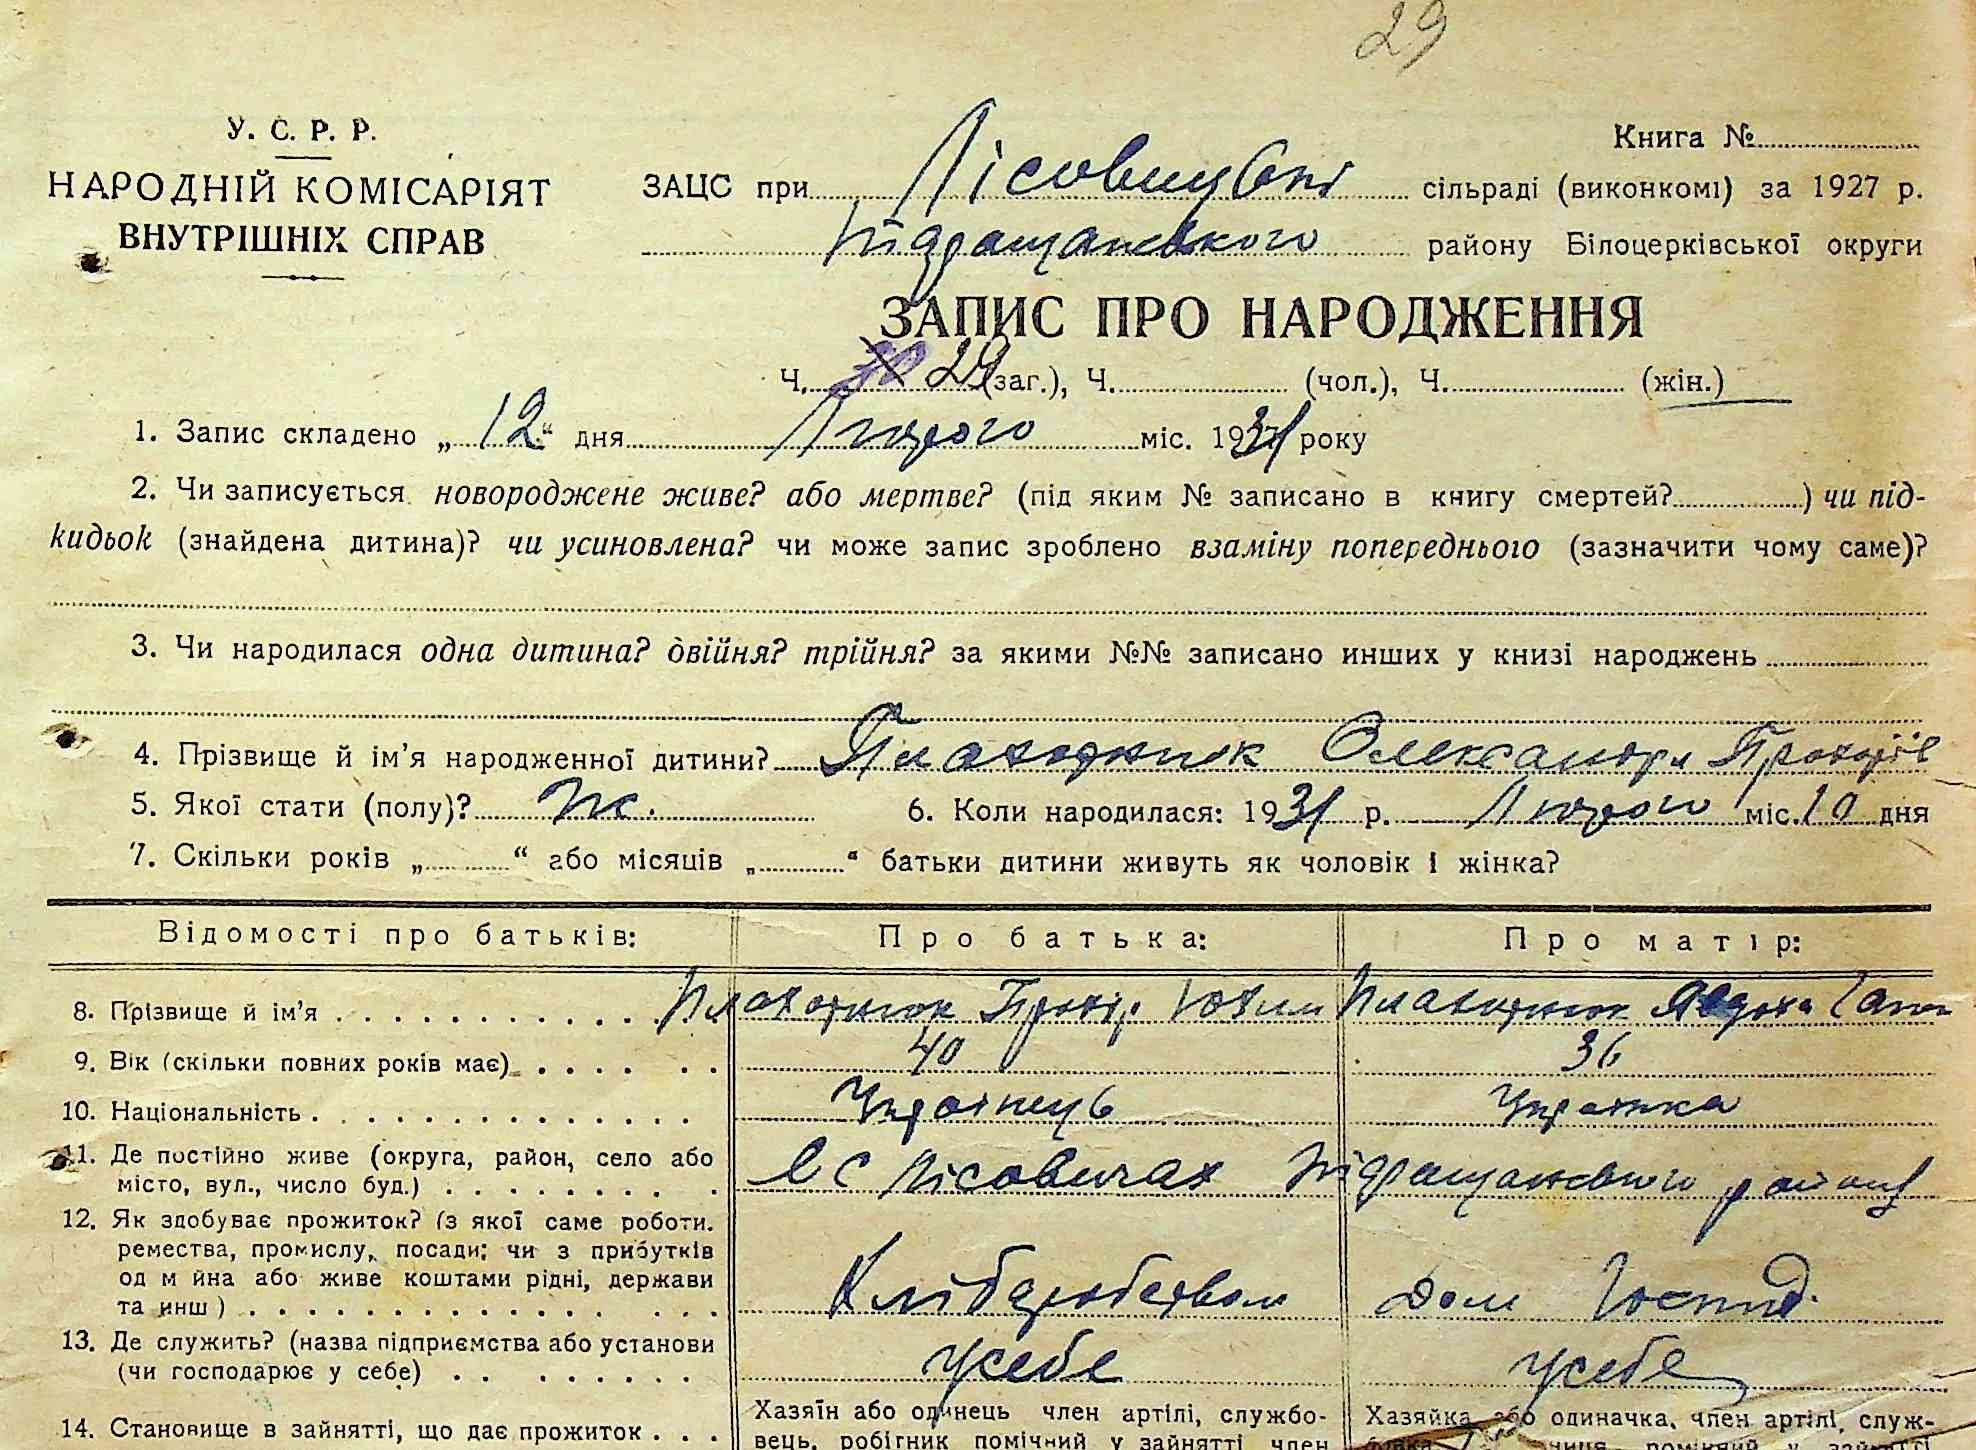 29
У. С. Р. Р.
НАРОДНІЙ КОМІСАРІЯТ
ВНУТРІШНІХ СПРАВ
Книга №
ЗАЦС при сільраді (виконкомі) за 1927 р.
району Білоцерківської округи
ЗАПИС ПРО НАРОДЖЕННЯ
Ч. 29 (заг.), Ч. (чол.), Ч. (жін.)
1. Запис складено „12“ дня Лютого міс. 1931 року
2. Чи записується новороджене живе? або мертве? (під яким № записано в книгу смертей? ) чи під-
кидьок (знайдена дитина)? чи усиновлена? чи може запис зроблено взаміну попереднього (зазначити чому саме)?
3. Чи народилася одна дитина? двійня? трійня? за якими №№ записано инших у книзі народжень
4. Прізвище й ім'я народженної дитини? Олександра
5. Якої стати (полу)? Ж. 6. Коли народилася: 1931 р. Лютого міс. 10 дня
7. Скільки років „ “ або місяців „ “ батьки дитини живуть як чоловік і жінка?
Відомості про батьків: Про батька: Про матір:
8. Прізвище й ім'я Плахотнюк Прохір Юхим Плахотнюк Явдоха
9. Вік (скільки повних років має) 40 36
10. Національність Українець Українка
11. Де постійно живе (округа, район, село або
місто, вул., число буд.) В с Лісовичах району
12. Як здобуває прожиток? (з якої саме роботи.
ремества, промислу, посади; чи з прибутків
од м йна або живе коштами рідні, держави
та инш) Хліборобством Дом Господ.
13. Де служить? (назва підприємства або установи
(чи господарює у себе) Усебе Усебе
14. Становище в зайнятті, що дає прожиток
Хазяїн або одинець член артілі, службо-
вець, робітник помічний у зайнятті член
Хазяйка або одиначка, член артілі, служ-